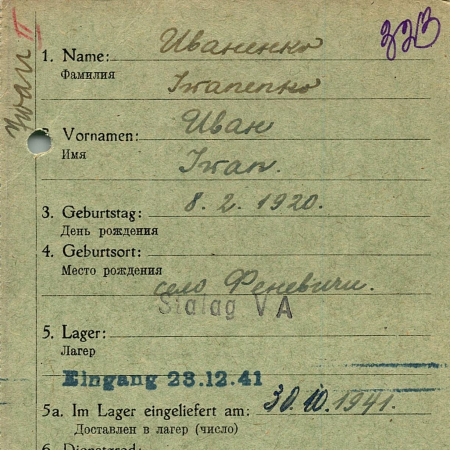 323
Iwan II
1. Name: Иваненко
Фамилия
Iwanenko
Vornamen: Иван
Имя
Iwan.
3. Geburtstag: 8. 2. 1920.
День рождения
4. Geburtsort:
Место рождения
село Феневичи.
Stalag V A
5. Lager:
Лагер
Eingang 23.12.41
5a. Im Lager eingeliefert am: 30. 10. 1941.
Доставлен в лагер (число)